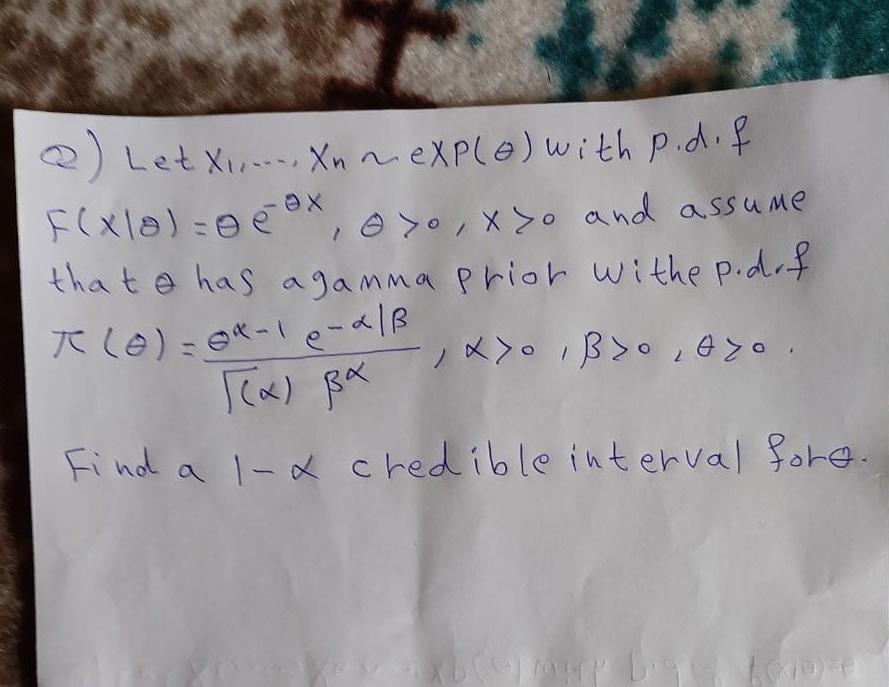 Q) Let X1,...., Xn ~ exp(θ) with p.d.f
F(x|θ) = θ e^-θx, θ>0, x>0 and assume
that θ has a gamma prior withe p.d.f
π(θ) = θ^α-1 e^-α|β / Γ(α) β^α, α>0, β>0, θ>0.
Find a 1-α credible interval for θ.